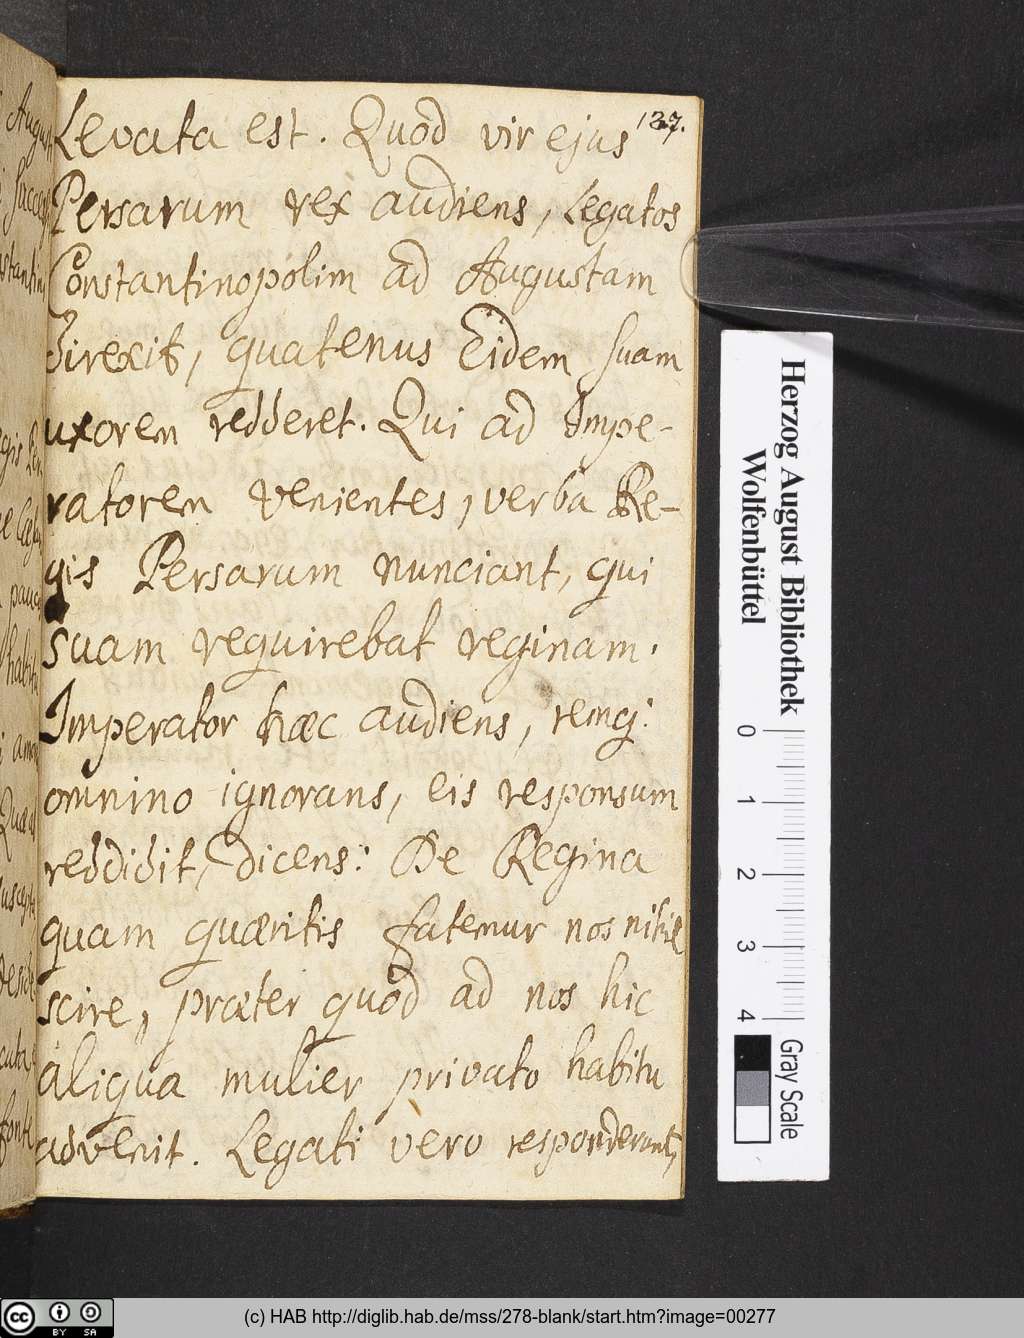 127.
Levata est. Quod vir ejus
Persarum rex audiens, Legatos
Constantinopolim ad Augustam
direxit, quatenus Eidem suam
uxorem redderet. Qui ad Impe-
ratorem venientes, verba Re-
gis Persarum nunciant, qui
suam requirebat reginam.
Imperator hæc audiens, remq:
omnino ignorans, eis responsum
reddidit, dicens: De Regina
quam quæritis fatemur nos nihil
scire, præter quod ad nos hic
aliqua mulier privato habitu
advenit. Legati vero responderunt,
Herzog August Bibliothek
Wolfenbüttel
0 1 2 3 4
Gray Scale
cc BY SA
(c) HAB http://diglib.hab.de/mss/278-blank/start.htm?image=00277